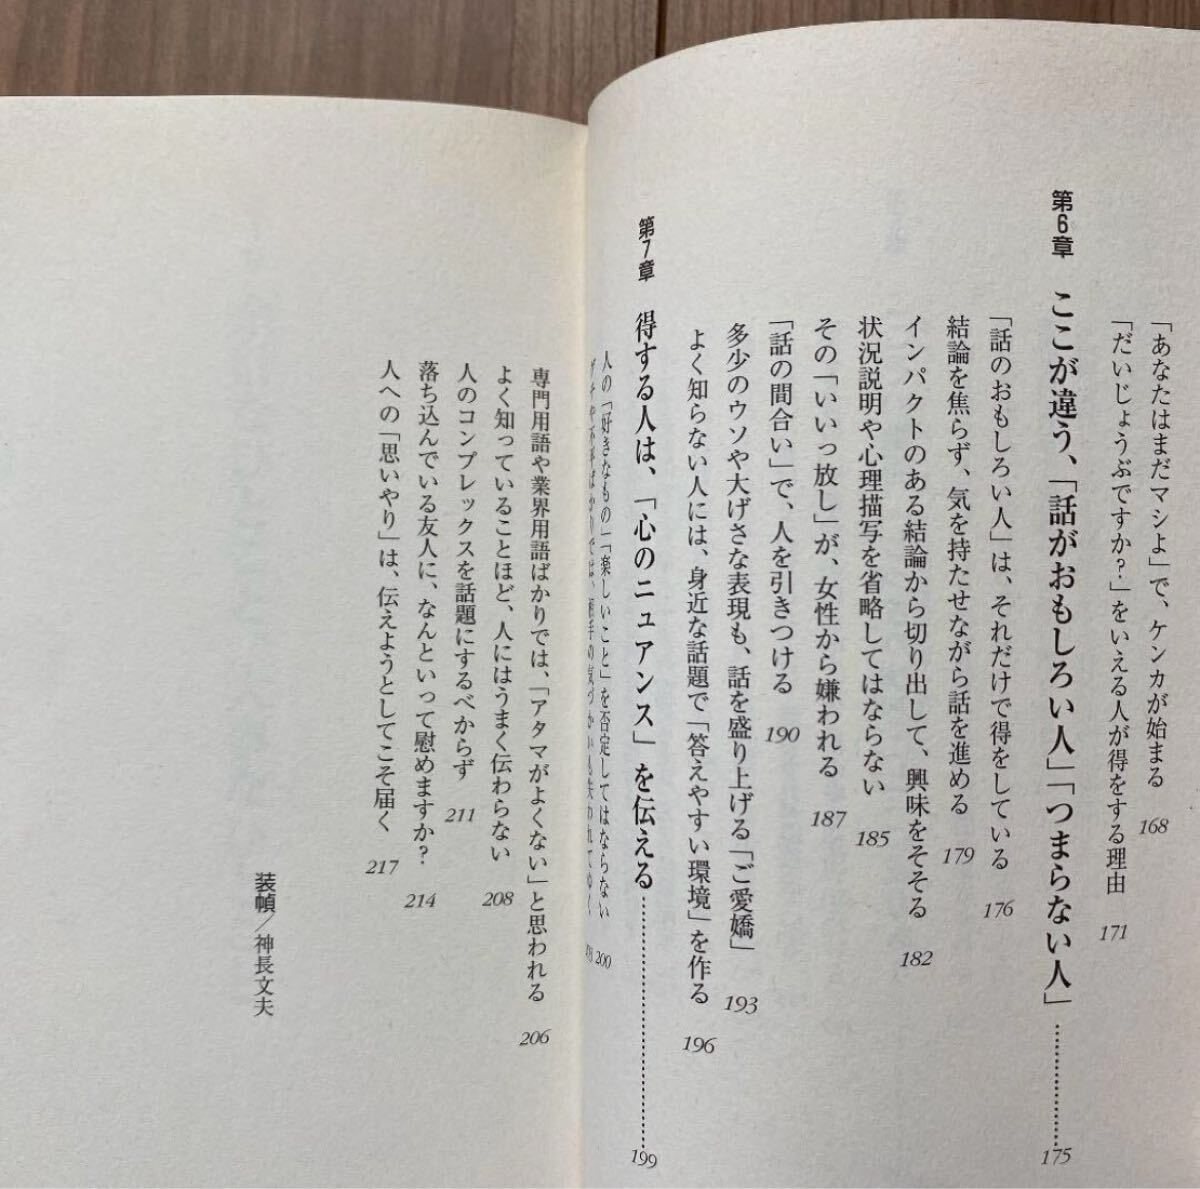 「あなたはまだマシよ」で、ケンカが始まる 168
「だいじょうぶですか？」をいえる人が得をする理由 171
第6章 ここが違う、「話がおもしろい人」「つまらない人」 175
「話のおもしろい人」は、それだけで得をしている 176
結論を焦らず、気を持たせながら話を進める 179
インパクトのある結論から切り出して、興味をそそる 182
状況説明や心理描写を省略してはならない 185
その「いいっ放し」が、女性から嫌われる 187
「話の間合い」で、人を引きつける 190
多少のウソや大げさな表現も、話を盛り上げる「ご愛嬌」 193
よく知らない人には、身近な話題で「答えやすい環境」を作る 196
第7章 得する人は、「心のニュアンス」を伝える 199
人の「好きなもの」「楽しいこと」を否定してはならない 200
グチや不平ばかりでは、相手の気づかいも失われてゆく
専門用語や業界用語ばかりでは、「アタマがよくない」と思われる 206
よく知っていることほど、人にはうまく伝わらない 208
人のコンプレックスを話題にするべからず 211
落ち込んでいる友人に、なんといって慰めますか？ 214
人への「思いやり」は、伝えようとしてこそ届く 217
装幀／神長文夫